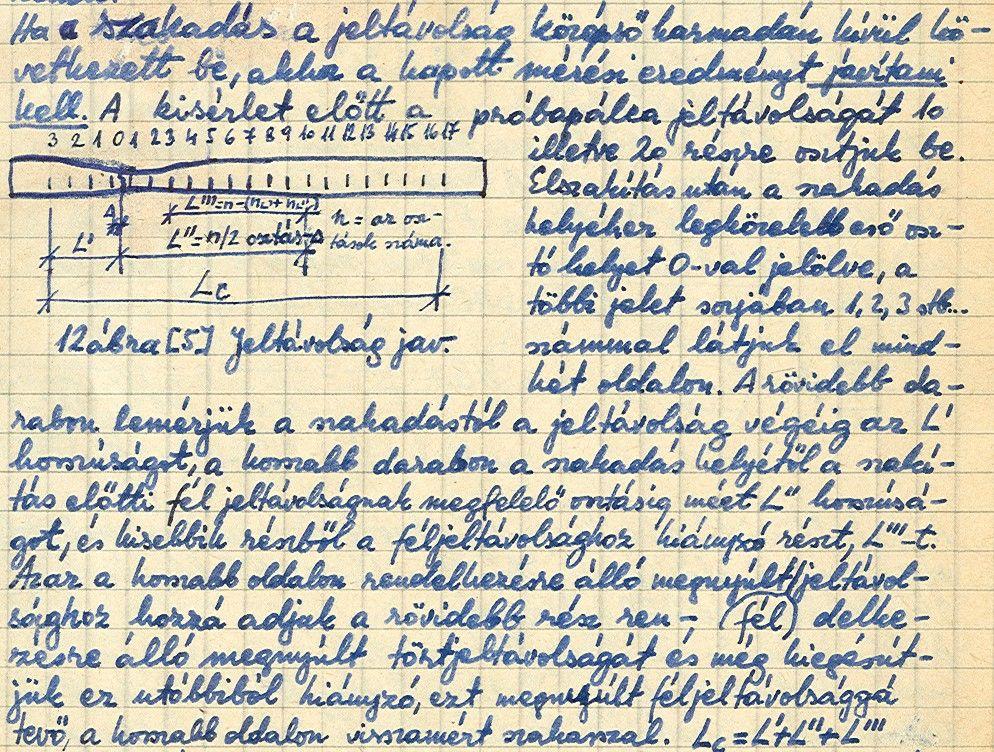 Ha a szakadás a jeltávolság középső harmadán kívül kö-
vetkezett be, akkor a kapott mérési eredményt javítani
kell. A kisérlet előtt a próbapálca jeltávolságát 10
3 2 1 0 1 2 3 4 5 6 7 8 9 10 11 12 13 14 15 16 17
illetve 20 részre osztjuk be.
Elszakítás után a szakadás
helyéhez legközelebb eső osz-
tó helyet 0-val jelölve, a
többi jelet sorjában 1, 2, 3 stb...
számmal látjuk el mind-
két oldalon. A rövidebb da-
L'''=n-(n_L'+n_L'')
L' L''=n/2 osztás
n = az osz-
tások száma.
Lc
12 ábra [5] Jeltávolság jav.
rabon lemérjük a szakadástól a jeltávolság végéig az L'
hosszúságot, a hosszabb darabon a szakadás helyétől a szakí-
tás előtti fél jeltávolságnak megfelelő osztásig mért L'' hosszúsá-
got, és kisebbik részből a féljeltávolsághoz hiányzó részt, L'''-t.
Azaz a hosszabb oldalon rendelkezésre álló megnyúlt/jeltávol-
sághoz hozzá adjuk a rövidebb rész ren- (fél) delke-
zésre álló megnyúlt törtjeltávolságát és még kiegészít-
jük ez utóbbiból hiányzó, ezt megnyúlt féljeltávolsággá
tevő, a hosszabb oldalon visszamért szakasszal. Lc=L'+L''+L'''